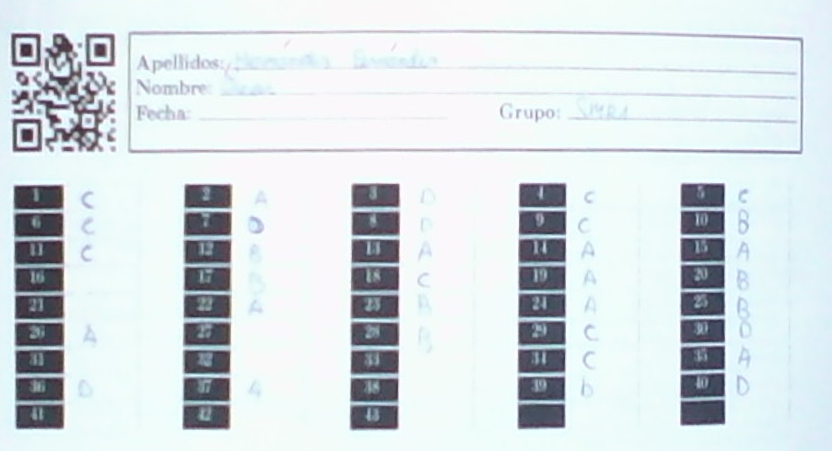 Apellidos: Hernández Fernández
Nombre:
Fecha: Grupo: SMR1
1 C 2 A 3 D 4 C 5 C
6 C 7 D 8 D 9 C 10 B
11 C 12 B 13 A 14 A 15 A
16 17 B 18 C 19 A 20 B
21 22 A 23 B 24 A 25 B
26 A 27 28 B 29 C 30 D
31 32 33 34 C 35 A
36 D 37 A 38 39 b 40 D
41 42 43